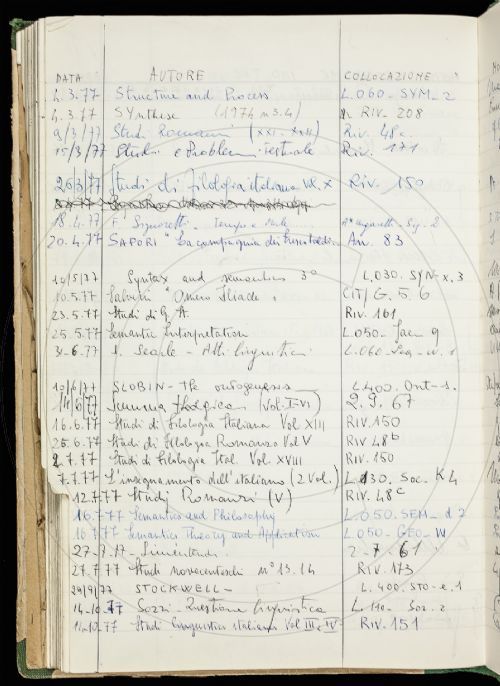 DATA AUTORE COLLOCAZIONE
4.3.77 Structure and Process L.060-SYM-2
4.3.77 SYnthese (1974 n 3.4) RIV. 208
9/3/77 Studi Romanzi (XXI-XXII) Riv. 48c
15/3/77 Studi e Problemi Testuale Riv. 171
26/3/77 Studi di filologia italiana Vol. X Riv. 150
18.4.77 F. Signoretti Tempo e
20.4.77 SAPORI "La compagnia dei Frescobaldi An. 83
10/5/77 Syntax and semantics 3° L.030. SYN-x.3
10.5.77 Salvini "Omero Iliade" CIT/G.5.6
23.5.77 Studi di G. A. Riv. 161
25.5.77 Semantic Interpretation L.050-Jac 9
3-6.77 S. Searle - Atti linguistici L.060-Sea-w.1
10/6/77 SLOBIN - the ontogenesis L.400.Ont-1.
14/6/77 Summa (Vol. I-VI) 2.9.67
16.6.77 Studi di filologia Italiana Vol XIII RIV.150
25.6.77 Studi di filologia Romanza Vol V RIV 48b
2.7.77 Studi di Filologia Ital. Vol. XVIII Riv. 150
7.7.77 L'insegnamento dell'italiano (2 Vol.) L.130. Soc. K4
12.7.77 Studj Romanzi (V) RIV. 48c
16.7.77 Semantics and Philosophy L.050.SEM-d 2
16.7.77 Semantics Theory and Application L.050-GEO-W
27-7.77- 2-7.61
27.7.77 Studi novecenteschi n° 13.14 RIV. 173
29/9/77 STOCKWELL- L.400.STO-e.1
14-10.77 Sozzi- Questione linguistica L.140- Soz. 2
14.10.77 Studi linguistica italiana Vol III e IV RIV. 151